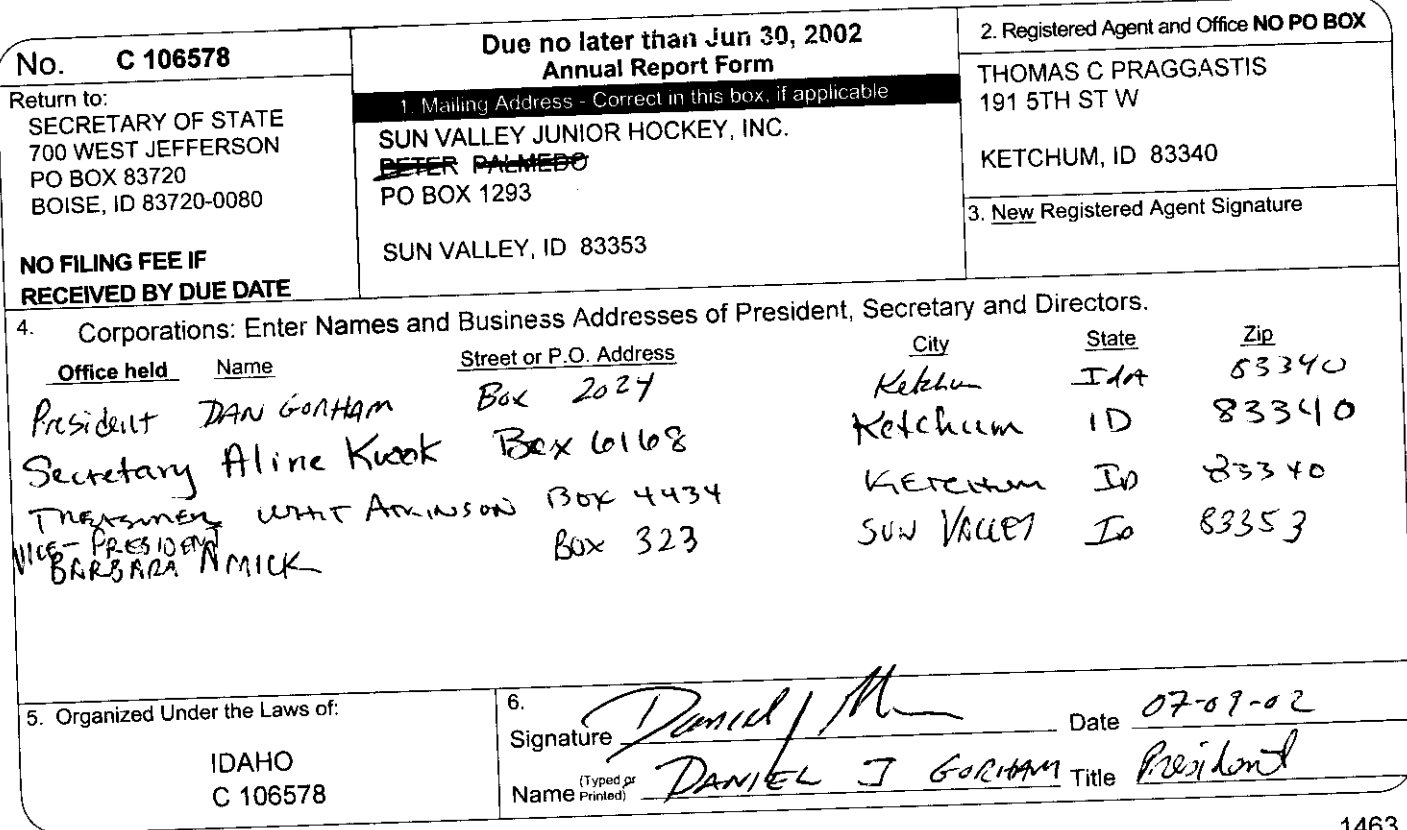 No. C 106578
Return to:
SECRETARY OF STATE
700 WEST JEFFERSON
PO BOX 83720
BOISE, ID 83720-0080
NO FILING FEE IF
RECEIVED BY DUE DATE
Due no later than Jun 30, 2002
Annual Report Form
1. Mailing Address - Correct in this box, if applicable
SUN VALLEY JUNIOR HOCKEY, INC.
PETER PALMEDO
PO BOX 1293
SUN VALLEY, ID 83353
2. Registered Agent and Office NO PO BOX
THOMAS C PRAGGASTIS
191 5TH ST W
KETCHUM, ID 83340
3. New Registered Agent Signature
4. Corporations: Enter Names and Business Addresses of President, Secretary and Directors.
Office held Name Street or P.O. Address City State Zip
President DAN GORHAM Box 2024 Ketchum IdA 83340
Secretary Aline Kwok Box 6168 Ketchum ID 83340
TREASURER WHIT ATKINSON Box 4434 KETCHUM ID 83340
VICE-PRESIDENT
BARBARA AMICK Box 323 SUN VALLEY ID 83353
5. Organized Under the Laws of:
IDAHO
C 106578
6.
Signature Daniel J Date 07-09-02
Name (Typed or Printed) DANIEL J GORHAM Title President
1463